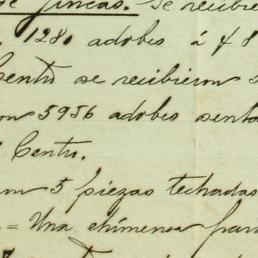 de fincas. Se recibie
1280 adobes á $ 8
Centro se recibieron
on 5956 adobes senta
Centro.
on 5 piezas techadas
= Una chimenea para